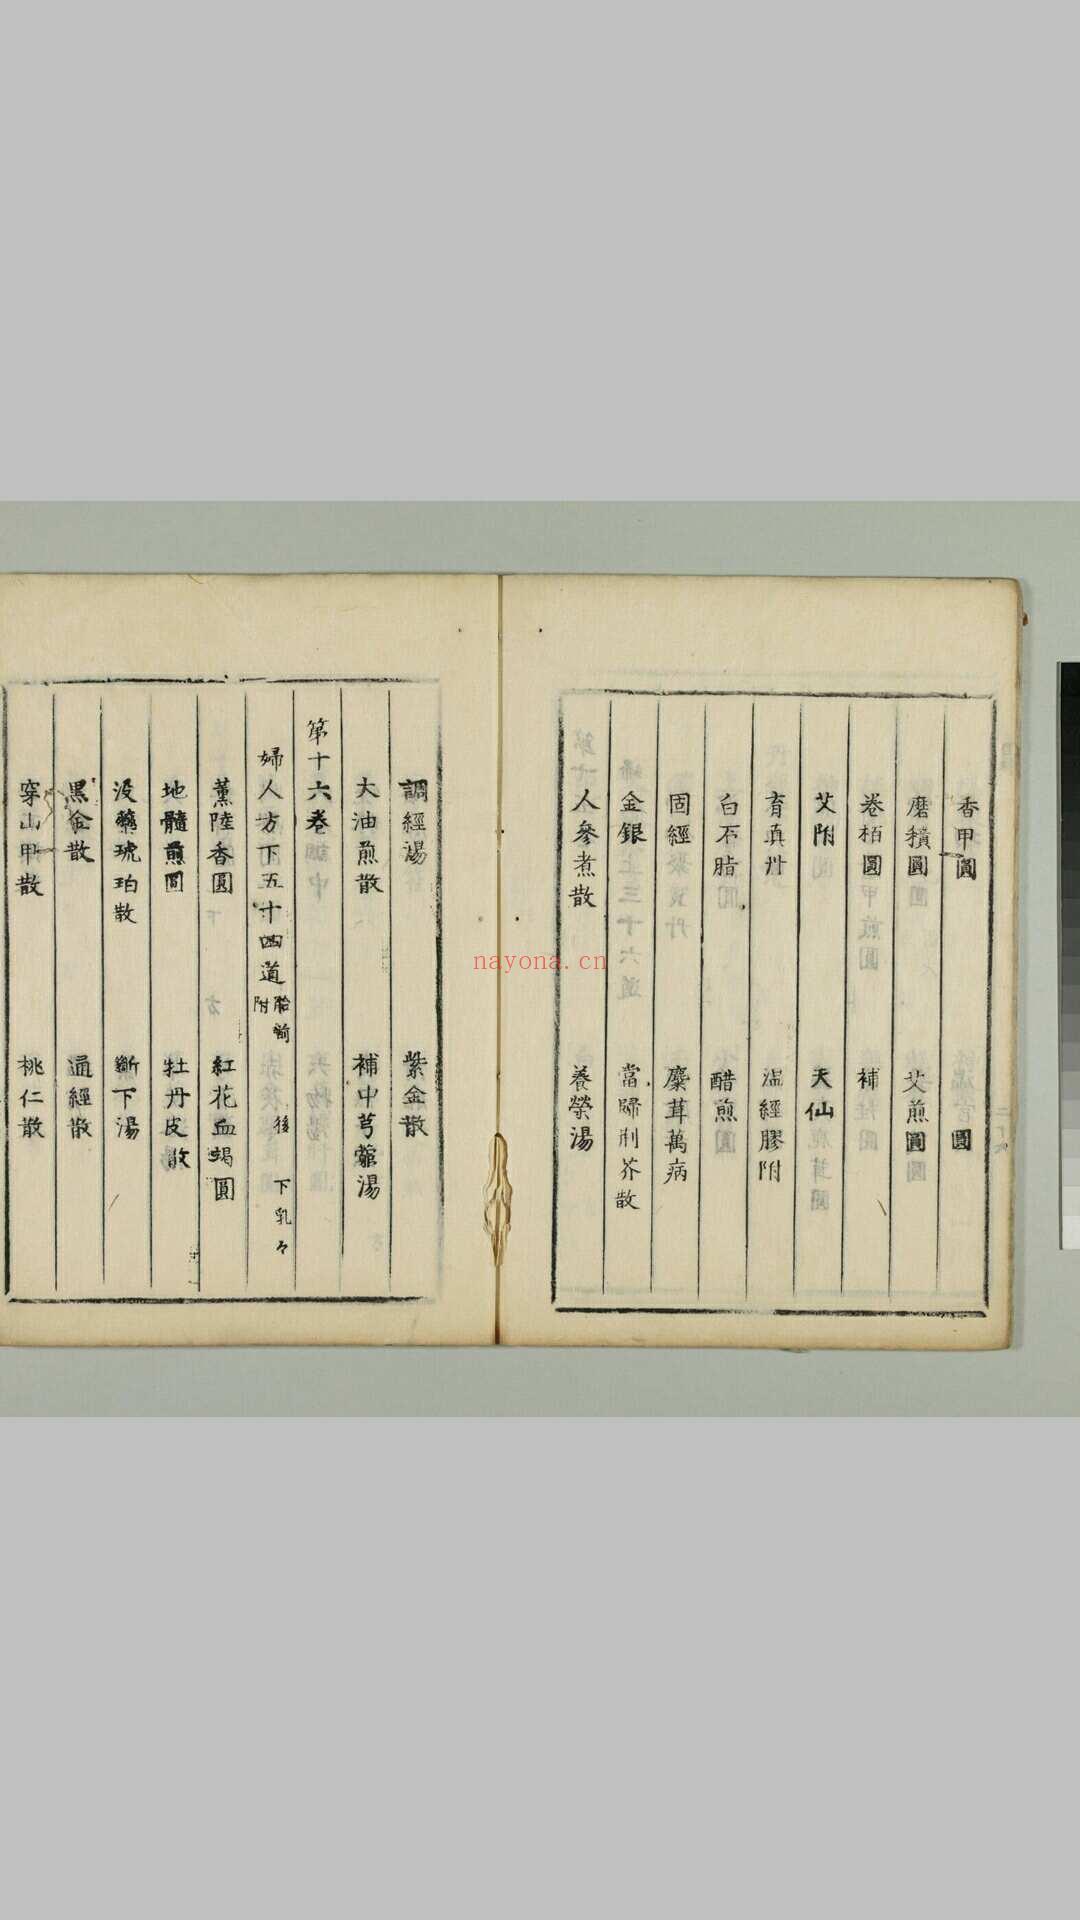 香甲圓　圓
磨積圓　艾煎圓
卷栢圓　補
艾附　天仙
育真丹　温經膠附
白石脂　醋煎
固經　麋茸萬病
金銀　當歸荆芥散
人參煮散　養榮湯
調經湯　紫金散
大油煎散　補中芎藭湯
第十六卷
婦人方下五十四道胎前後下乳々附
薰陸香圓　紅花血竭圓
地髓煎圓　牡丹皮散
没藥琥珀散　斷下湯
黑金散　通經散
穿山甲散　桃仁散
nayona.cn